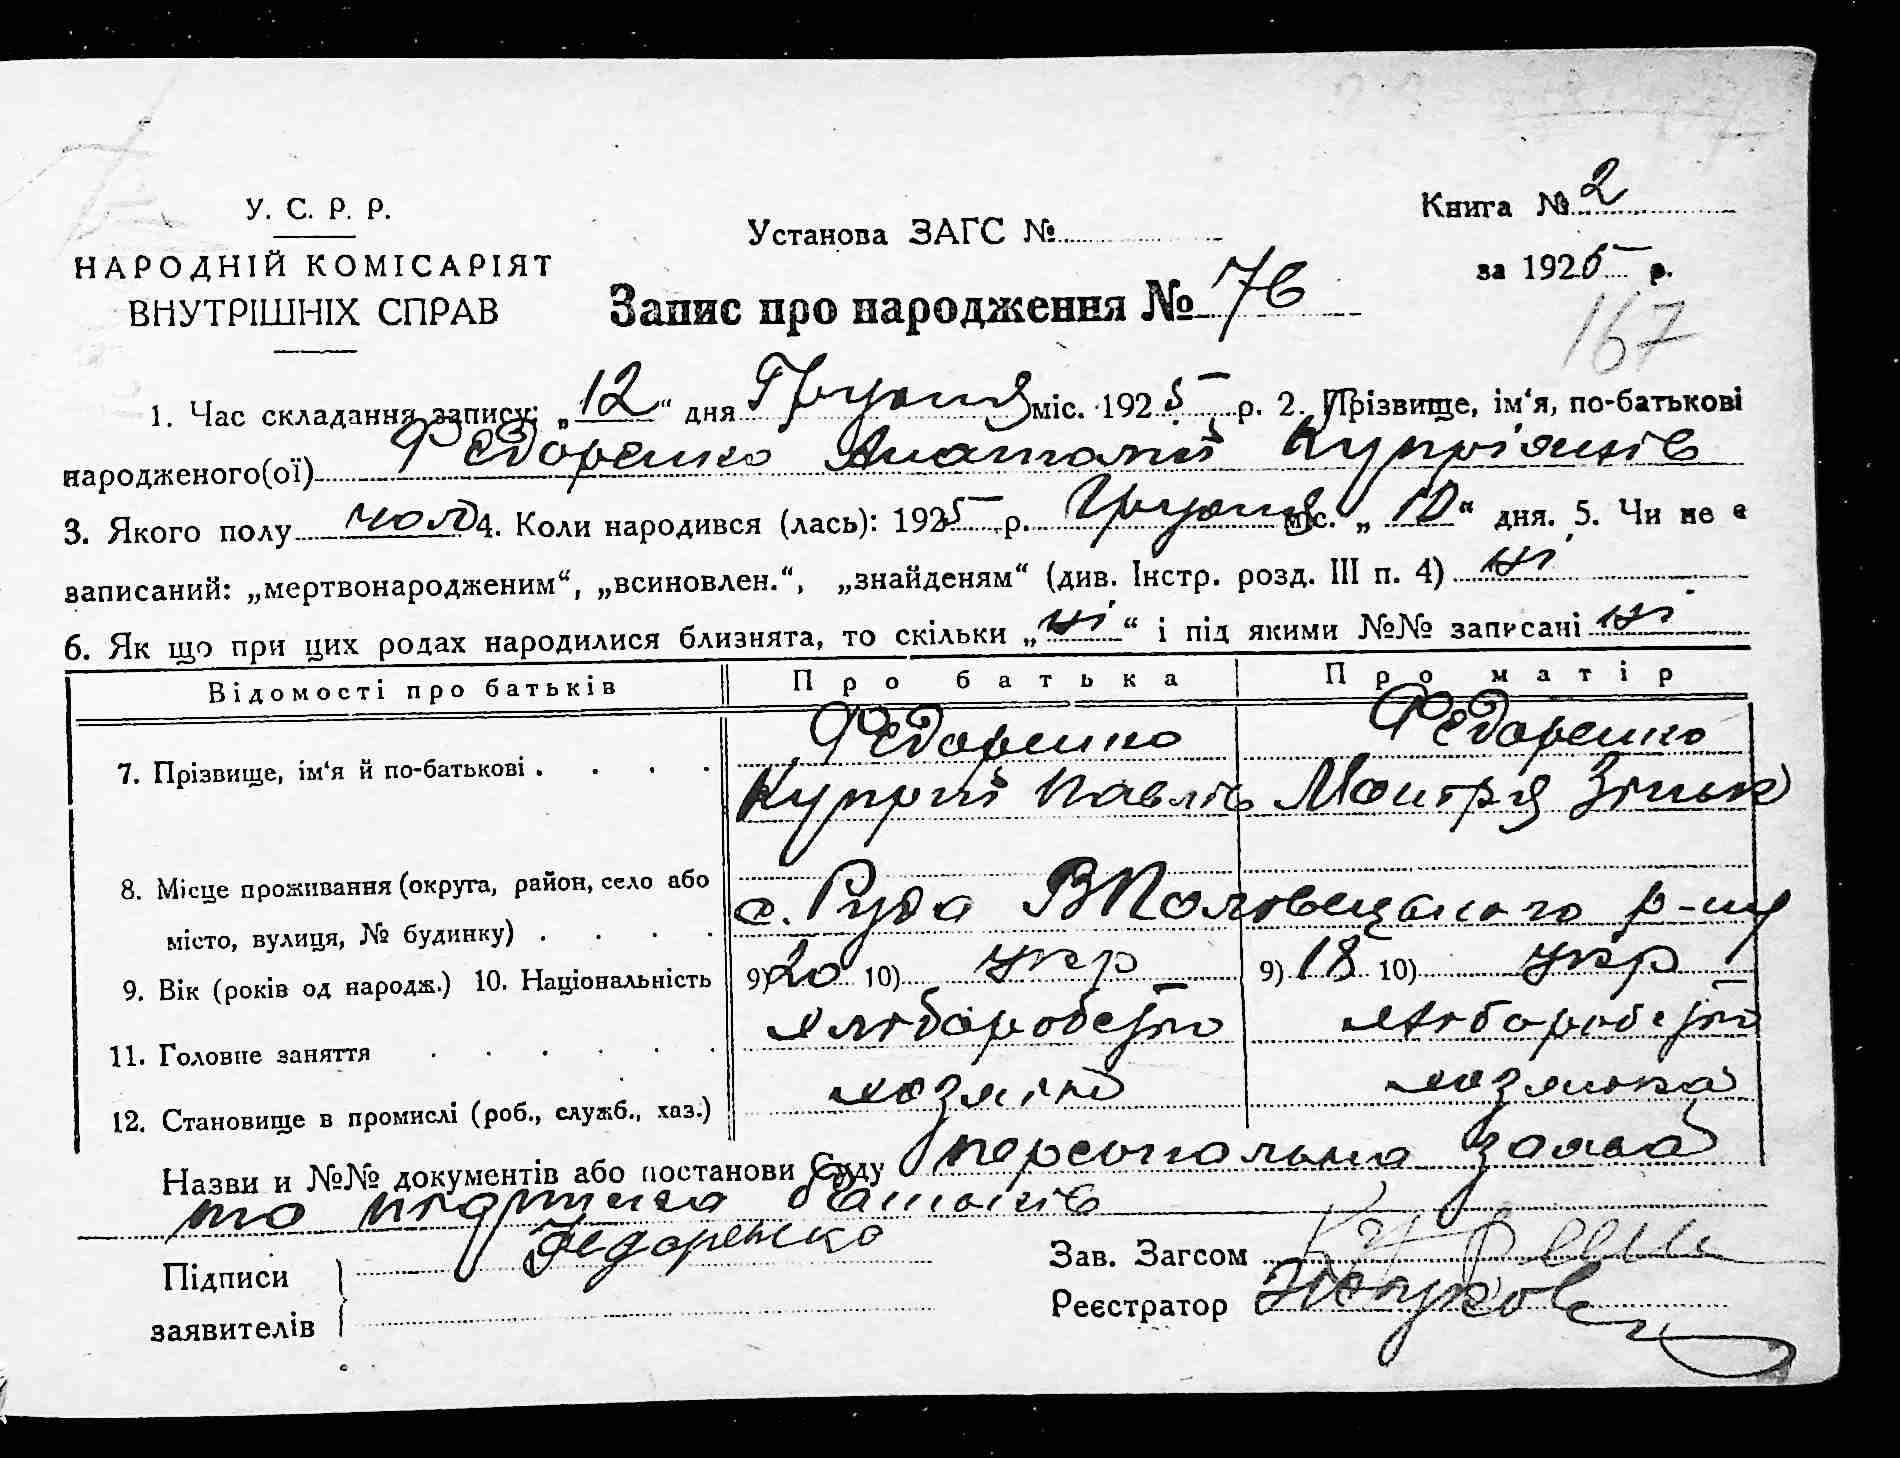 У. С. Р. Р.
НАРОДНІЙ КОМІСАРІЯТ
ВНУТРІШНІХ СПРАВ
Установа ЗАГС №
Книга № 2
за 1925 р.
Запис про народження № 76
167
1. Час складання запису: „12“ дня Грудня міс. 1925 р. 2. Прізвище, ім‘я, по-батькові
народженого(ої) Федоренко Анатолій Купріянів
3. Якого полу чол 4. Коли народився (лась): 1925 р. Грудня міс. „10“ дня. 5. Чи не є
записаний: „мертвонародженим“, „всиновлен.“, „знайденям“ (див. Інстр. розд. III п. 4) ні
6. Як що при цих родах народилися близнята, то скільки „ні“ і під якими №№ записані ні
Відомості про батьків Про батька Про матір
7. Прізвище, ім‘я й по-батькові Федоренко Федоренко
Купрій Павлів Мотря Зіньк
8. Місце проживання (округа, район, село або
місто, вулиця, № будинку) с. Руда ВПоловецького р-ну
9. Вік (років од народж.) 10. Національність 9) 20 10) укр 9) 18 10) укр
11. Головне заняття хлібороб хлібороб
12. Становище в промислі (роб., служб., хаз.) хозяїн хозяйка
Назви и №№ документів або постанови Суду персональна заява
та підписка батьків
Підписи
заявителів
Федоренко
Зав. Загсом
Реєстратор